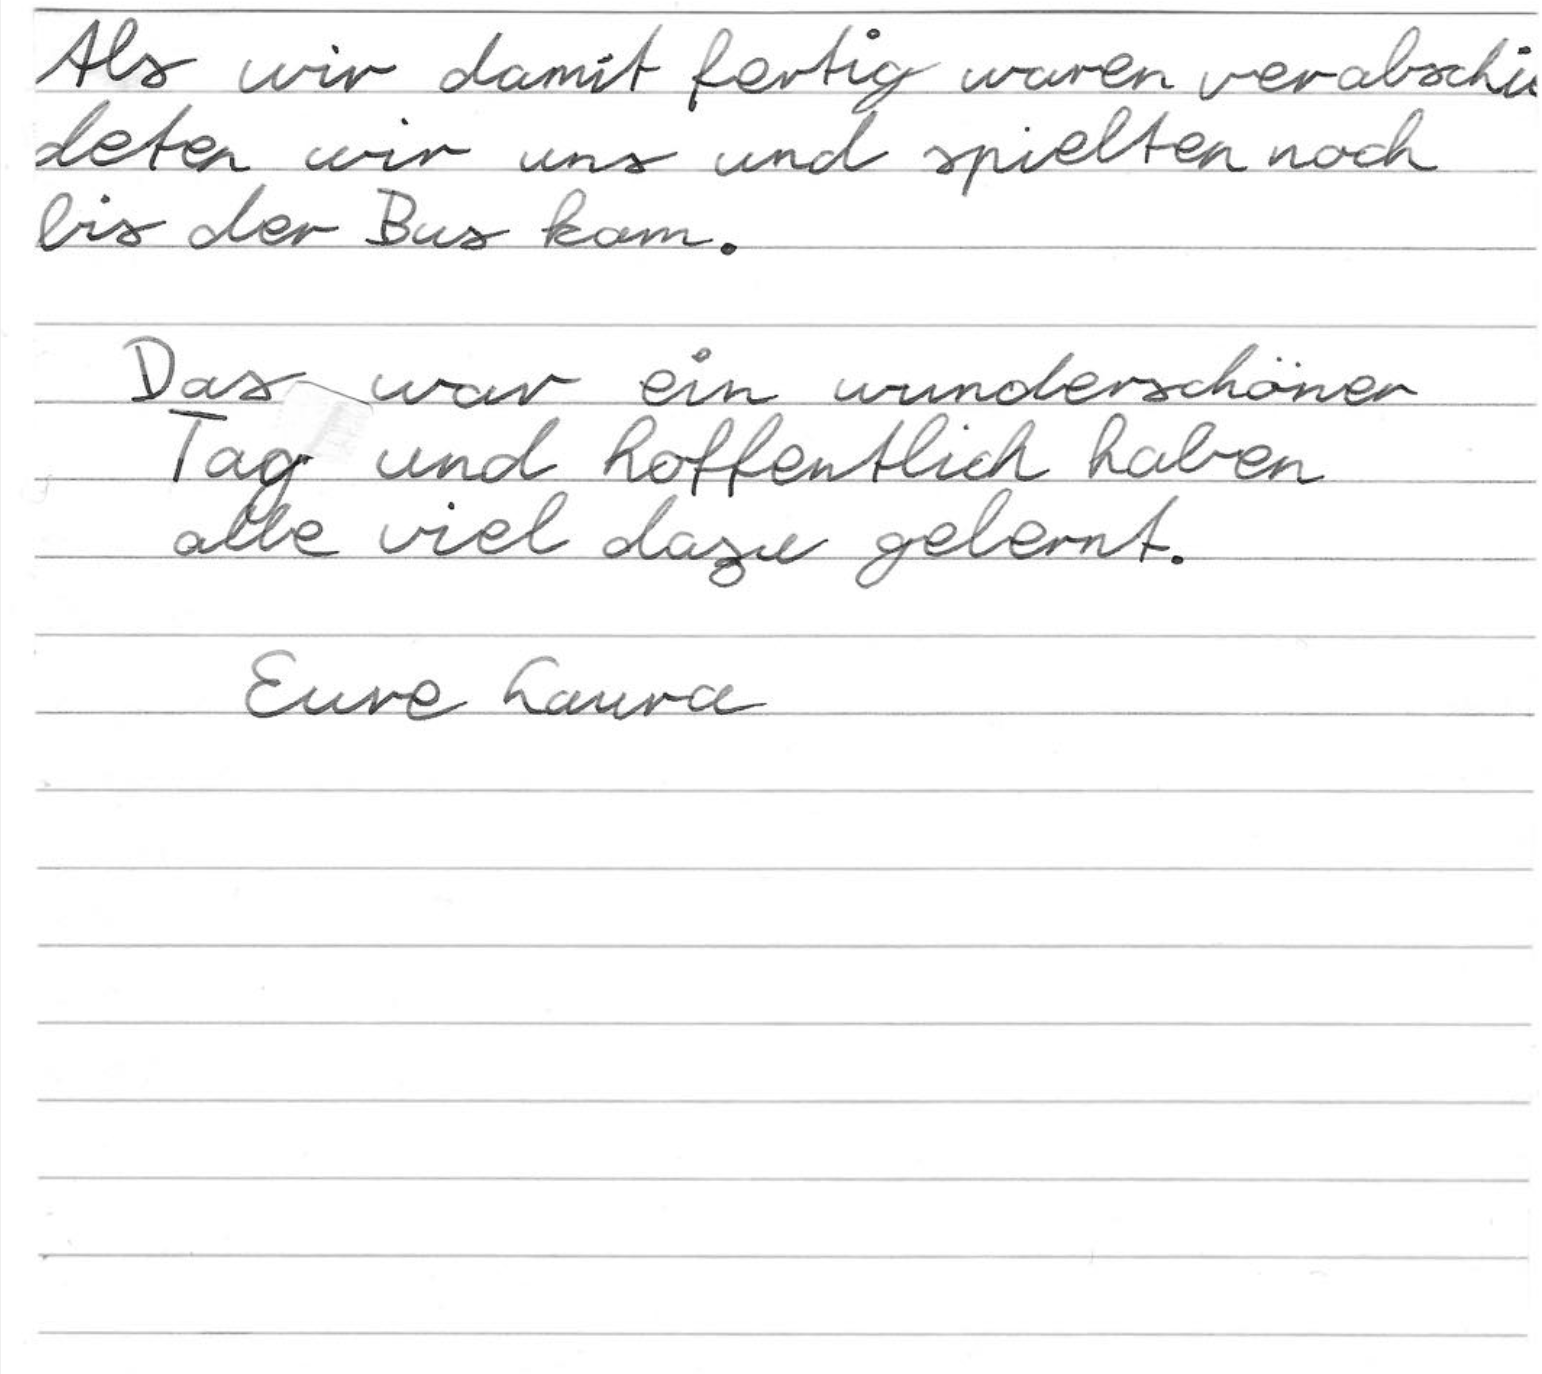 Als wir damit fertig waren verabschie
deten wir uns und spielten noch
bis der Bus kam.
Das war ein wunderschöner
Tag und hoffentlich haben
alle viel dazu gelernt.
Eure Laura